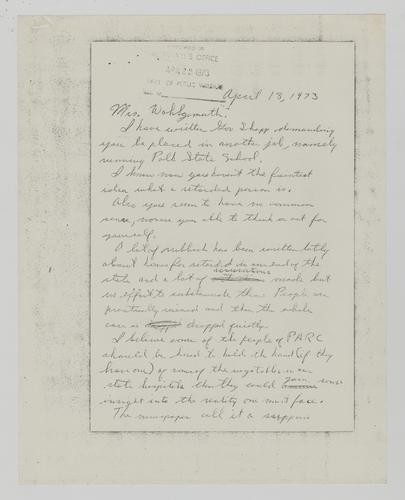 RECEIVED IN
SECRETARY'S OFFICE
APR 23 1973
DEPT. OF PUBLIC WELFARE
April 18, 1973
Mrs. Wohlgemuth:
I have written Gov Shapp demanding
you be placed in another job, namely
running Polk State School.
I know now you haven't the faintest
idea what a retarded person is.
Also you seem to have no common
sense, nor are you able to think or act for
yourself.
A lot of rubbish has been written lately
about homes for retarded in one end of the
state and a lot of accusations made but
no effort to substantiate them. People are
practically ruined and then the whole
case is dropped quietly.
I believe some of the people of PARC
should be hired to hold the hand (if they
have one) of some of the vegetables in our
state hospitals then they could gain some
insight into the reality one must face.
The newspaper call it a